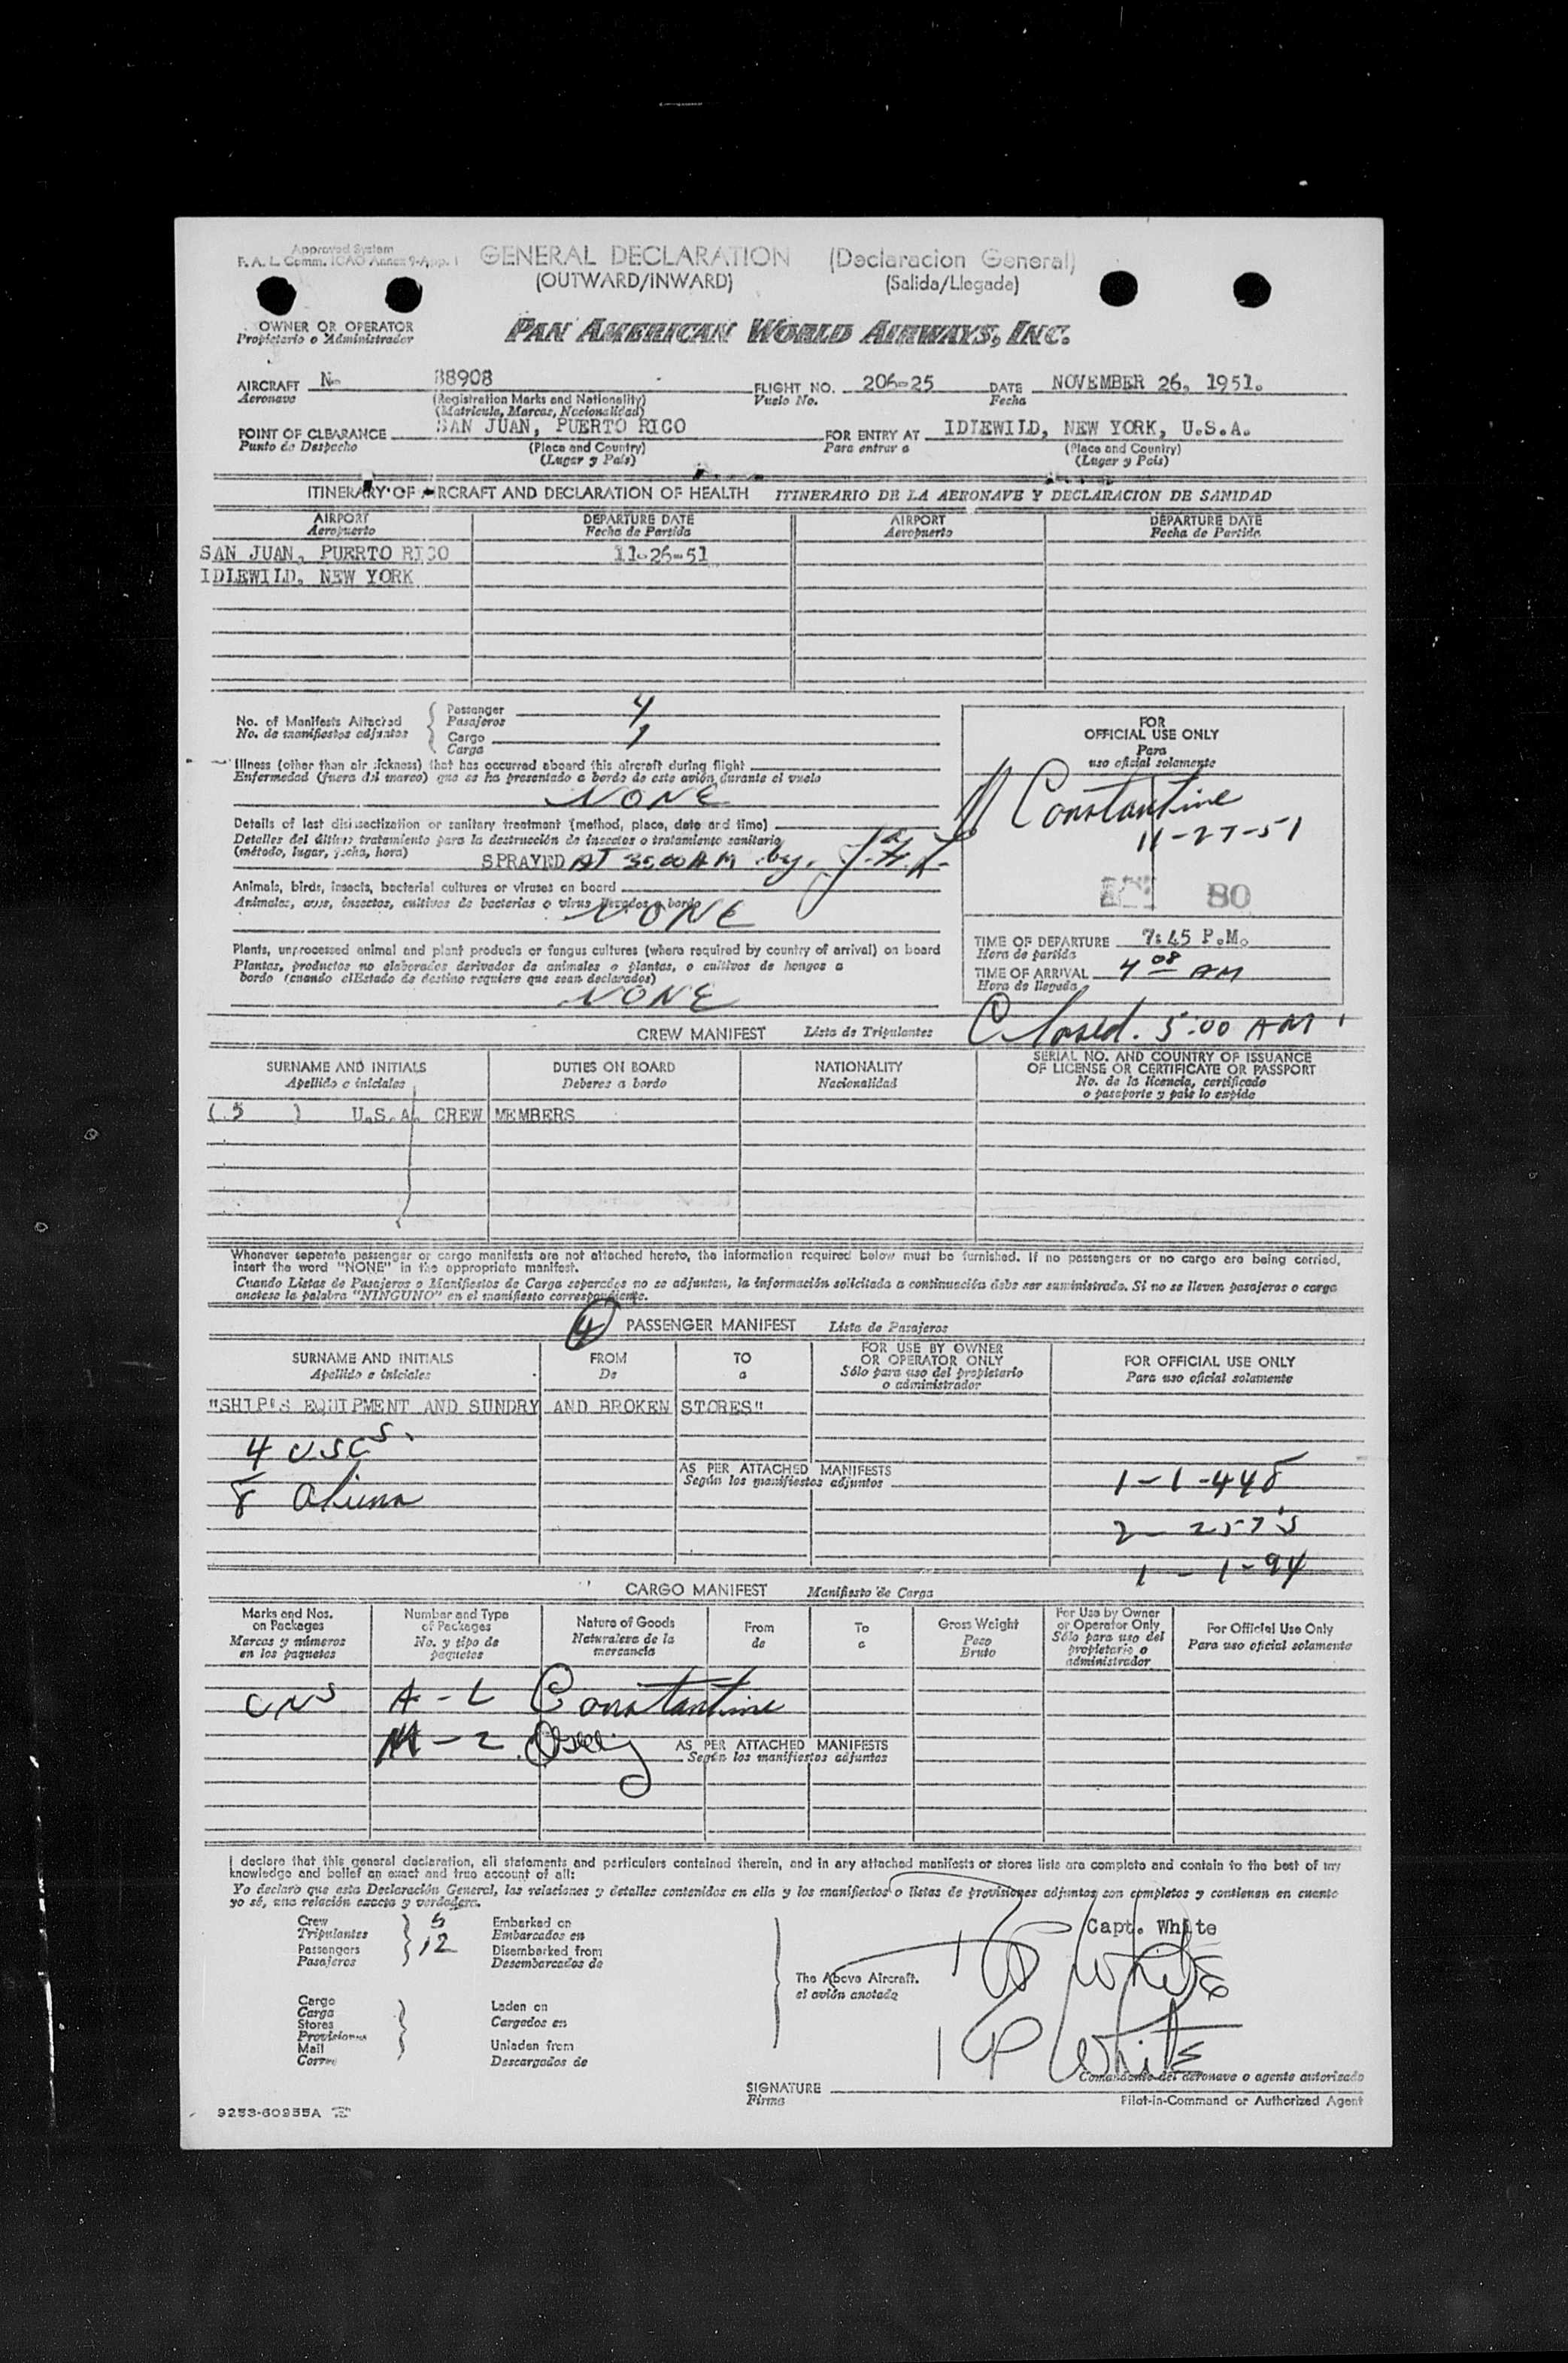 Approved System
F. A. L. Comm. ICAO Annex 9-App. 1
GENERAL DECLARATION (Declaracion General)
(OUTWARD/INWARD) (Salida/Llegada)
OWNER OR OPERATOR
Propietario o Administrador
PAN AMERICAN WORLD AIRWAYS, INC.
AIRCRAFT N- 88908 FLIGHT NO. 206-25 DATE NOVEMBER 26, 1951.
Aeronave (Registration Marks and Nationality) Vuelo No. Fecha
(Matricula, Marcas, Nacionalidad)
POINT OF CLEARANCE SAN JUAN, PUERTO RICO FOR ENTRY AT IDLEWILD, NEW YORK, U.S.A.
Punto de Despacho (Place and Country) Para entrar a (Place and Country)
(Lugar y País) (Lugar y País)
ITINERARY OF AIRCRAFT AND DECLARATION OF HEALTH ITINERARIO DE LA AERONAVE Y DECLARACION DE SANIDAD
AIRPORT DEPARTURE DATE AIRPORT DEPARTURE DATE
Aeropuerto Fecha de Partida Aeropuerto Fecha de Partida
SAN JUAN, PUERTO RICO 11-26-51
IDLEWILD, NEW YORK
No. of Manifests Attached Passenger 4
No. de manifiestos adjuntos Pasajeros
Cargo 1
Carga
FOR
OFFICIAL USE ONLY
Para
uso oficial solamente
Illness (other than air sickness) that has occurred aboard this aircraft during flight
Enfermedad (fuera del mareo) que se ha presentado a bordo de este avión durante el vuelo
NONE
Constantine
11-27-51
80
Details of last disinsectization or sanitary treatment (method, place, date and time)
Detalles del último tratamiento para la destrucción de insectos o tratamiento sanitario
(método, lugar, fecha, hora)
SPRAYED AT 3:00 AM by
Animals, birds, insects, bacterial cultures or viruses on board
Animales, aves, insectos, cultivos de bacterias o virus llevados a bordo
NONE
Plants, unprocessed animal and plant products or fungus cultures (where required by country of arrival) on board
Plantas, productos no elaborados derivados de animales o plantas, o cultivos de hongos a
bordo (cuando el Estado de destino requiere que sean declarados)
NONE
TIME OF DEPARTURE 7:45 P.M.
Hora de partida
TIME OF ARRIVAL 4 08 AM
Hora de llegada
Closed. 5:00 AM
CREW MANIFEST Lista de Tripulantes
SURNAME AND INITIALS DUTIES ON BOARD NATIONALITY SERIAL NO. AND COUNTRY OF ISSUANCE
OF LICENSE OR CERTIFICATE OR PASSPORT
Apellido e iniciales Deberes a bordo Nacionalidad No. de la licencia, certificado
o pasaporte y país lo expide
( 5 ) U.S.A. CREW MEMBERS
Whenever seperate passenger or cargo manifests are not attached hereto, the information required below must be furnished. If no passengers or no cargo are being carried,
insert the word "NONE" in the appropriate manifest.
Cuando Listas de Pasajeros o Manifiestos de Carga seperados no se adjuntan, la información solicitada a continuación debe ser suministrada. Si no se lleven pasajeros o carga
anotese la palabra "NINGUNO" en el manifiesto correspondiente.
4 PASSENGER MANIFEST Lista de Pasajeros
SURNAME AND INITIALS FROM TO FOR USE BY OWNER
OR OPERATOR ONLY FOR OFFICIAL USE ONLY
Apellido e iniciales De a Sólo para uso del propietario
o administrador Para uso oficial solamente
"SHIP'S EQUIPMENT AND SUNDRY AND BROKEN STORES"
4 USCS.
AS PER ATTACHED MANIFESTS
Según los manifiestos adjuntos
1-1-448
8 Aliens
2 - 257's
1 - 1-94
CARGO MANIFEST Manifiesto de Carga
Marks and Nos.
on Packages
Marcas y números
en los paquetes
Number and Type
of Packages
No. y tipo de
paquetes
Nature of Goods
Naturaleza de la
mercancia
From
de
To
a
Gross Weight
Peso
Bruto
For Use by Owner
or Operator Only
Sólo para uso del
propietario o
administrador
For Official Use Only
Para uso oficial solamente
A - L Constantine
M - 2
AS PER ATTACHED MANIFESTS
Según los manifiestos adjuntos
I declare that this general declaration, all statements and particulars contained therein, and in any attached manifests or stores lists are complete and contain to the best of my
knowledge and belief an exact and true account of all:
Yo declaro que esta Declaración General, las relaciones y detalles contenidos en ella y los manifiestos o listas de provisiones adjuntos son completos y contienen en cuanto
yo sé, una relación exacta y verdadera.
Crew 5 Embarked on
Tripulantes Embarcados en
Passengers 12 Disembarked from
Pasajeros Desembarcados de
Capt. White
The Above Aircraft.
el avión anotada
White
Cargo
Carga
Stores
Provisiones
Mail
Correo
Laden on
Cargados en
Unladen from
Descargados de
White
Comandante del aeronave o agente autorizado
SIGNATURE
Firma
Pilot-in-Command or Authorized Agent
9253-60955A